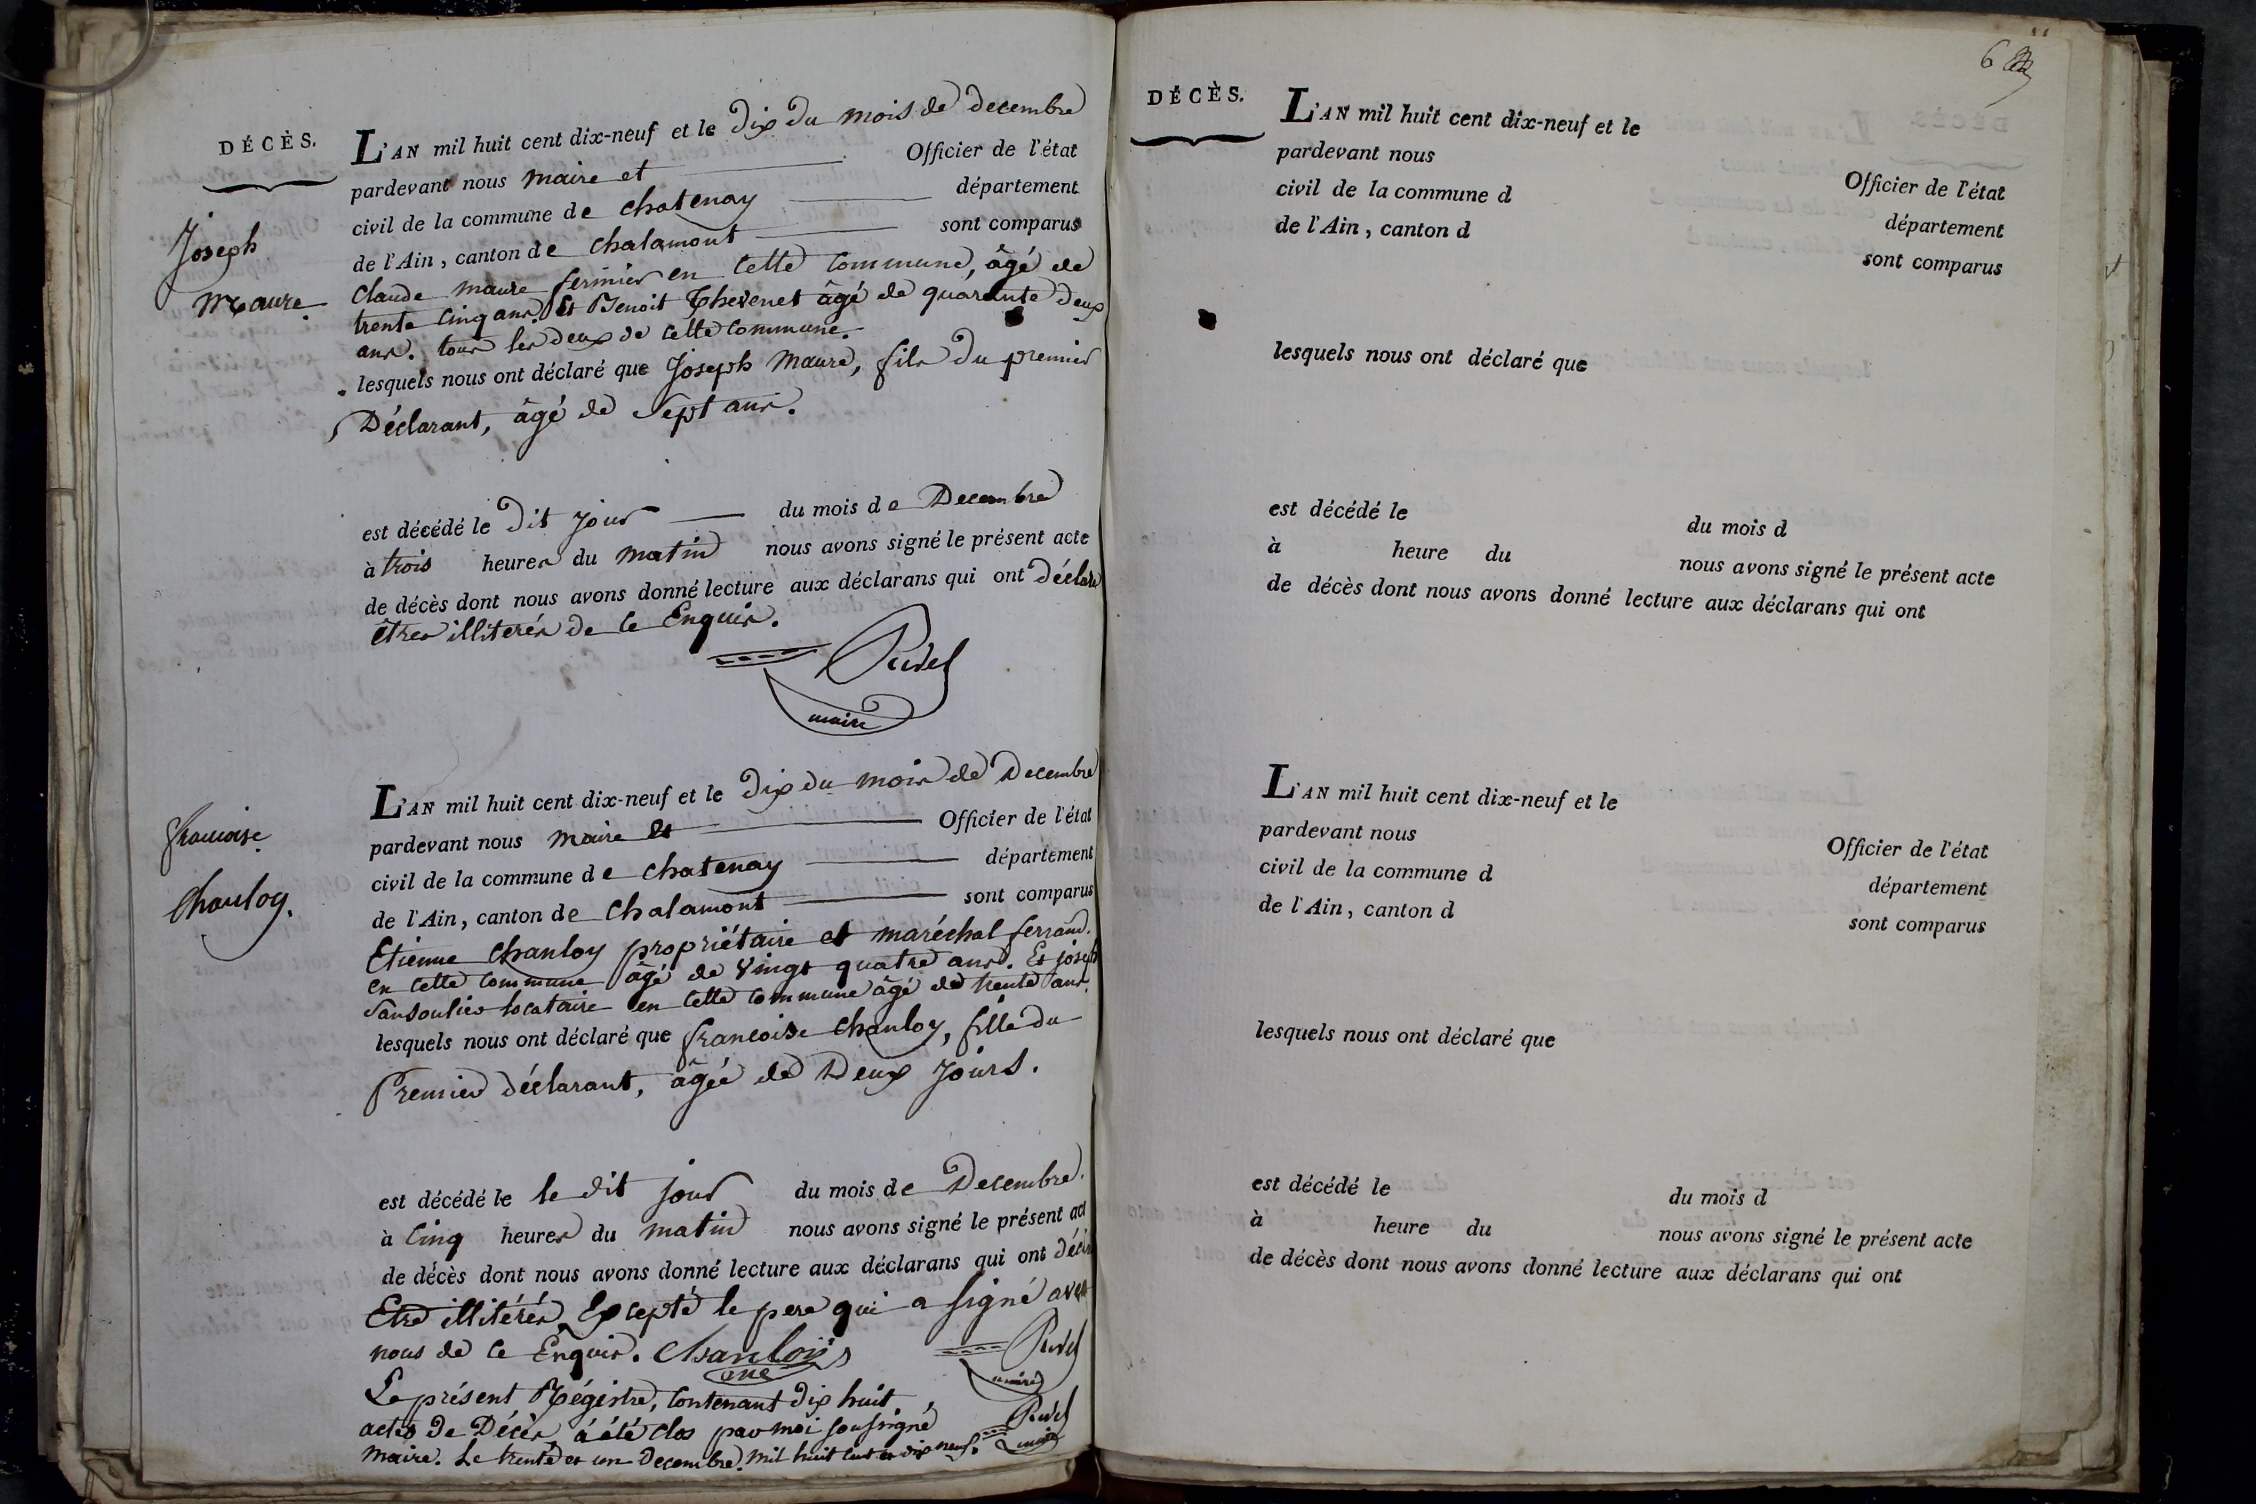 DÉCÈS.
Joseph
Maure
L'AN mil huit cent dix-neuf et le dix du mois de decembre
pardevant nous maire et Officier de l'état
civil de la commune de chatenay département
de l'Ain, canton de Chalamont sont comparus
Claude maure fermier en cette commune, âgé de
trente cinq ans. Et Benoit Thevenet âgé de quarante deux
ans. tous les deux de cette commune.
lesquels nous ont déclaré que Joseph Maure, fils du premier
Déclarant, âgé de Sept ans.
est décédé le dit jour du mois de Decembre
à trois heures du matin nous avons signé le présent acte
de décès dont nous avons donné lecture aux déclarans qui ont déclaré
êtres illiterés de ce Enquis.
Rudel
maire
françoise
Chanloy.
L'AN mil huit cent dix-neuf et le dix du mois de Decembre
pardevant nous maire et Officier de l'état
civil de la commune de chatenay département
de l'Ain, canton de Chalamont sont comparus
Etienne Chanloy propriétaire et maréchal ferrand.
en cette commune âgé de vingt quatre ans. Et joseph
Sansoulier locataire en cette commune âgé de trente ans.
lesquels nous ont déclaré que françoise Chanloy, fille du
Premier déclarant, âgée de Deux Jours.
est décédé le le dit jour du mois de Decembre.
à Cinq heures du matin nous avons signé le présent act
de décès dont nous avons donné lecture aux déclarans qui ont
Etre illitérés, Excepté le pere qui a signé avec
nous de ce Enquis. Chanloy
Rudel
maire
Le présent Régistre, contenant dix huit
actes de Décès, a été clos par moi soussigné
maire. Le trente et un Decembre. mil huit cent et dix neuf.
Rudel
maire
6
DÉCÈS.
L'AN mil huit cent dix-neuf et le
pardevant nous Officier de l'état
civil de la commune d département
de l'Ain, canton d sont comparus
lesquels nous ont déclaré que
est décédé le du mois d
à heure du nous avons signé le présent acte
de décès dont nous avons donné lecture aux déclarans qui ont
L'AN mil huit cent dix-neuf et le
pardevant nous Officier de l'état
civil de la commune d département
de l'Ain, canton d sont comparus
lesquels nous ont déclaré que
est décédé le du mois d
à heure du nous avons signé le présent acte
de décès dont nous avons donné lecture aux déclarans qui ont